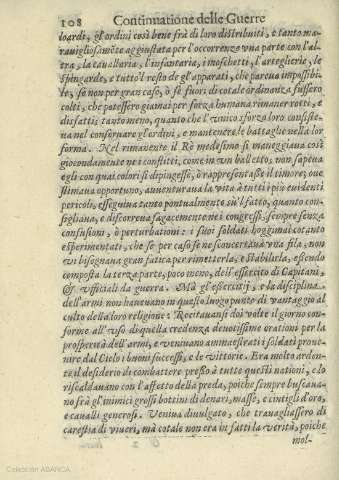 108 Continuatione delle Guerre
loardi, gl'ordini così bene frà di loro distribuiti, e tanto ma-
rauigliosamẽte aggiustata per l'occorrenze vna parte con l'al-
tra, la cauallaria, l'infantaria, i moschetti, l'arteglierie, le
spingarde, e tutto'l resto de gl'apparati, che pareua impossibi-
le, se non per gran caso, ò se fuori di cotale ordinanza fussero
colti, che potessero giamai per forza humana rimaner rotti, e
disfatti; tanto meno, quanto che l'vnico sforzo loro consiste-
ua nel conseruare gl'ordini, e mantenere le battaglie nella lor
forma. Nel rimanente il Rè medesimo si maneggiaua così
giocondamente nei conflitti, come in vn balletto, non sapeua
egli con quai colori si dipingesse, ò rappresentasse il timore; oue
stimaua opportuno, auuenturaua la vita à tutti i più euidenti
pericoli, esseguiua tanto pontualmente sù'l fatto, quanto con-
sigliaua, e discorreua sagacemente nei congressi, sempre senza
confusioni, ò perturbationi: i suoi soldati hoggimai cotanto
esperimentati, che se per caso se ne sconcertaua vna fila, non
vi bisognaua gran fatica per rimetterla, e stabilirla, essendo
composta la terza parte, poco meno, dell'essercito di Capitani,
& vfficiali da guerra. Mà gl'esserciti, e la disciplina
dell'armi non haueuano in questo luogo punto di vantaggio al
culto della loro religione: Recitauansi doi volte il giorno con-
forme all'vso di quella credenza deuotissime orationi per la
prosperità dell'armi, e veniuano ammaestrati i soldati proue-
nire dal Cielo i buoni successi, e le vittorie. Era molto arden-
te il desiderio di combattere presso à tutte queste nationi, e lo
riscaldauano con l'affetto della preda, poiche sempre buscaua-
no frà gl'inimici grossi bottini di denari, masse, e cintigli d'oro,
e caualli generosi. Veniua diuulgato, che trauagliassero di
carestia di viueri, mà cotale non era in fatti la verità, poiche
mol-
Colección ABANCA